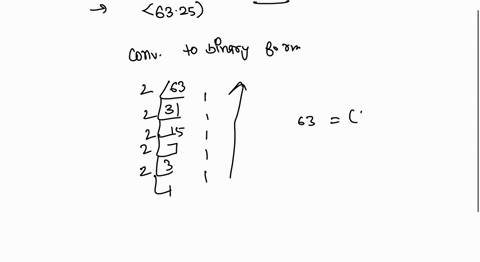 → (63.25)
Conv. to binary form
2 63
2 31 1
2 15 1
2 7 1
2 3 1
1 1
63 = (